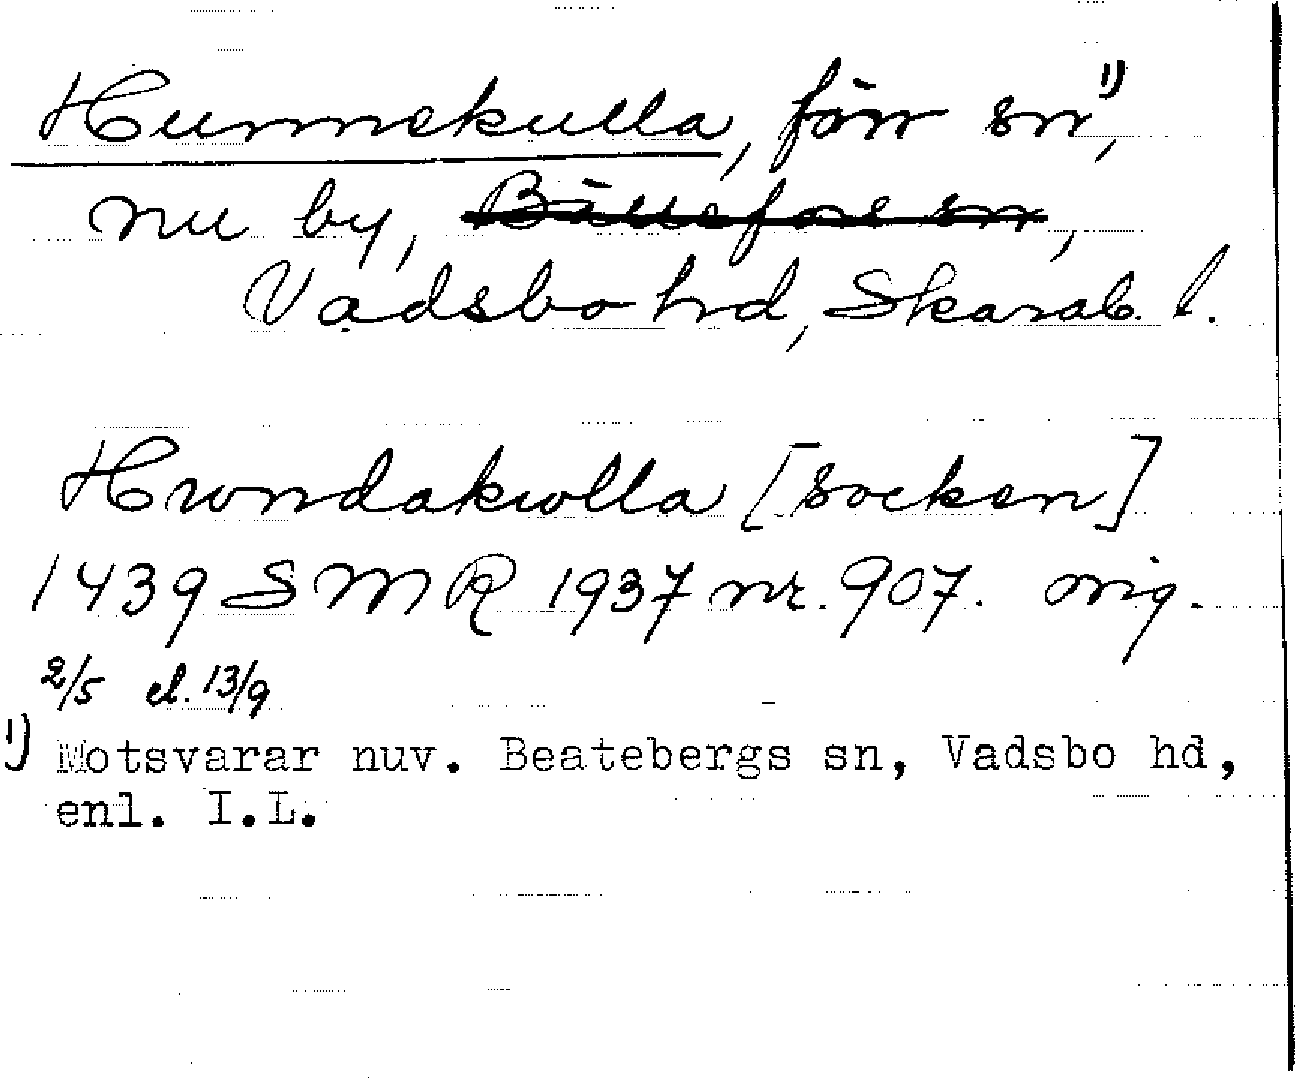 Hunnekulla, förr sn¹⁾,
nu by, Bällefors sn,
Vadsbo hd, Skarab. l.
Hwndakwlla [socken]
1439 SMR 1937 nr. 907. orig.
2/5 el. 13/9
1) Motsvarar nuv. Beatebergs sn, Vadsbo hd,
enl. I.L.